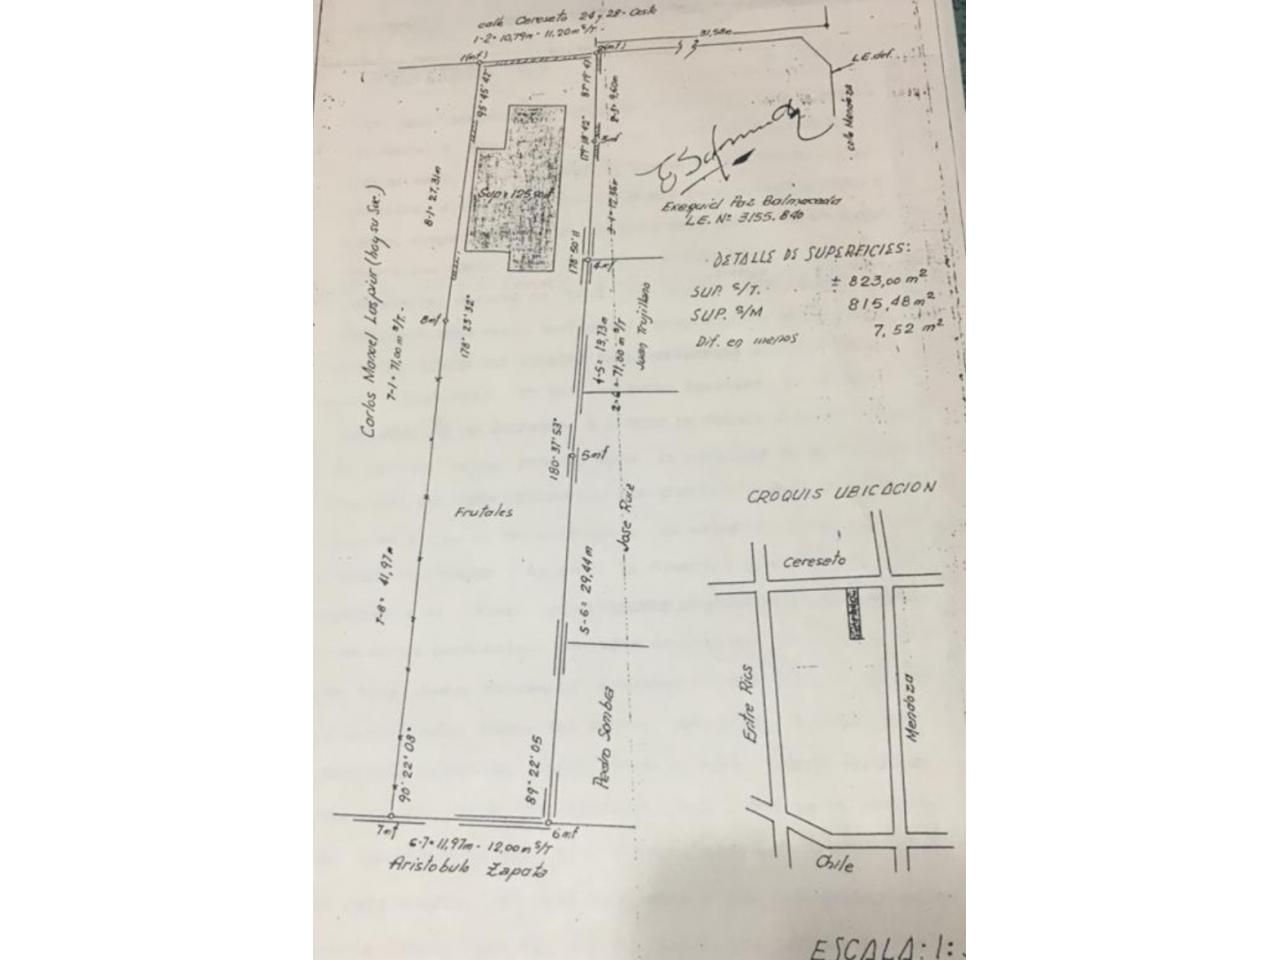 calle Cereseto 24 y 28- Oeste
1-2= 10,79m - 11,20m s/T -
1(mf)
2(mf)
31,58m
L.E. def.
calle Mendoza
95° 45' 42"
87° 19' 47
2-3= 9,60m
179° 18' 42"
3mf
Sup=
8-1= 27,31m
Carlos Manuel Laspiur (hoy su Suc.)
7-1= 71,00 m s/T. -
178° 50' 11
4mf
8mf
178° 23' 32"
4-5= 19,73m
2-6= 71,00 m s/T
Juan Trujillano
180° 37' 53"
5mf
Frutales
Jose Ruiz
7-8= 41,97m
5-6= 29,44m
Pedro Sombra
90° 22' 08"
89° 22' 05
7mf
6mf
6-7= 11,97m - 12,00m s/T
Aristobulo Zapata
Exequiel Paz Balmaceda
L.E. Nº 3155.840
DETALLE DE SUPERFICIES:
SUP. s/T. ± 823,00 m²
SUP. s/M 815,48 m²
Dif. en menos 7,52 m²
CROQUIS UBICACION
Cereseto
Entre Rios
Mendoza
Chile
ESCALA: 1: